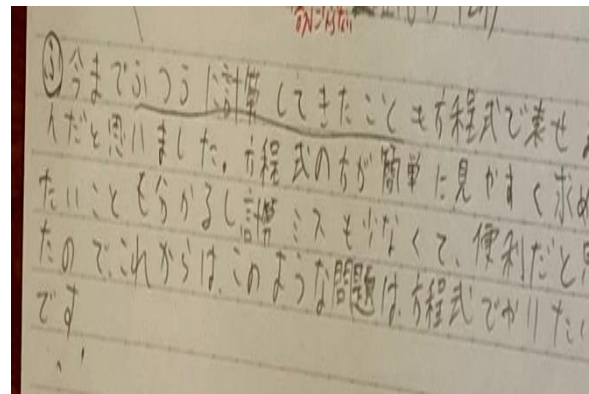 ふ 今までふつうに計算してきたことも方程式で表せ
んだと思いました。方程式の方が簡単に見やすく求め
たいことも分かるし計算ミスも少なくて、便利だと思
たので、これからは、このような問題は、方程式でかいたい
です